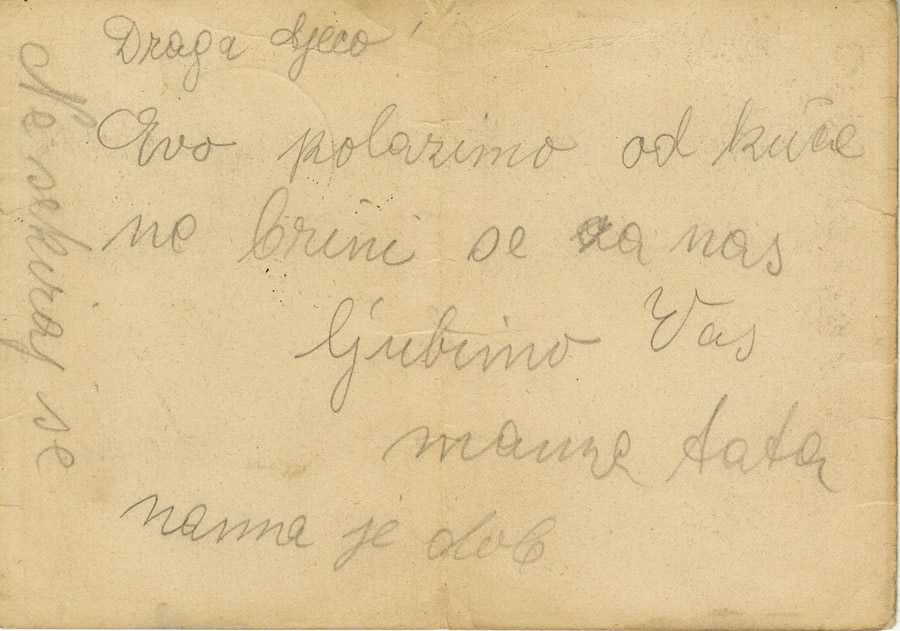 Draga djeco!
Evo polazimo od kuće
ne brini se za nas
ljubimo Vas
mama tata
nama je dob
Ne sekiraj se